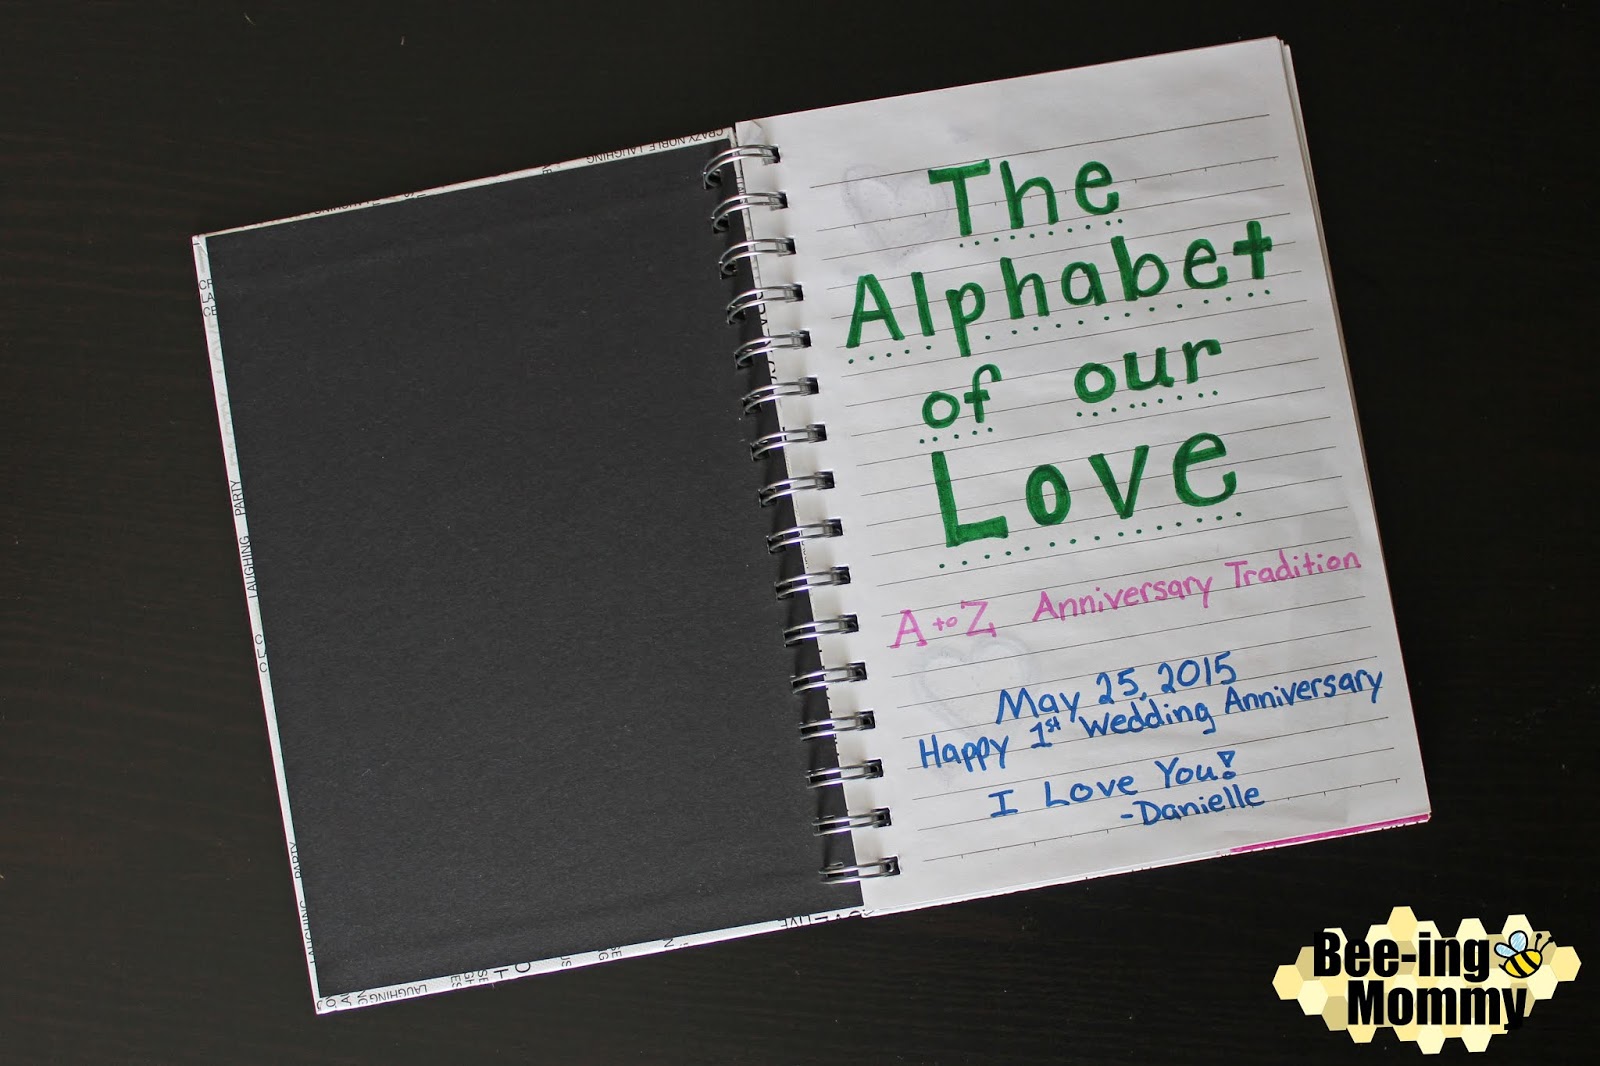 CRAZY NOBLE LAUGHING
LAUGHING PARTY
The
Alphabet
of our
Love
A to Z Anniversary Tradition
May 25, 2015
Happy 1st Wedding Anniversary
I Love You!
-Danielle
PARTY
LAUGHING
LIVE
LAUGHING
Bee-ing
Mommy